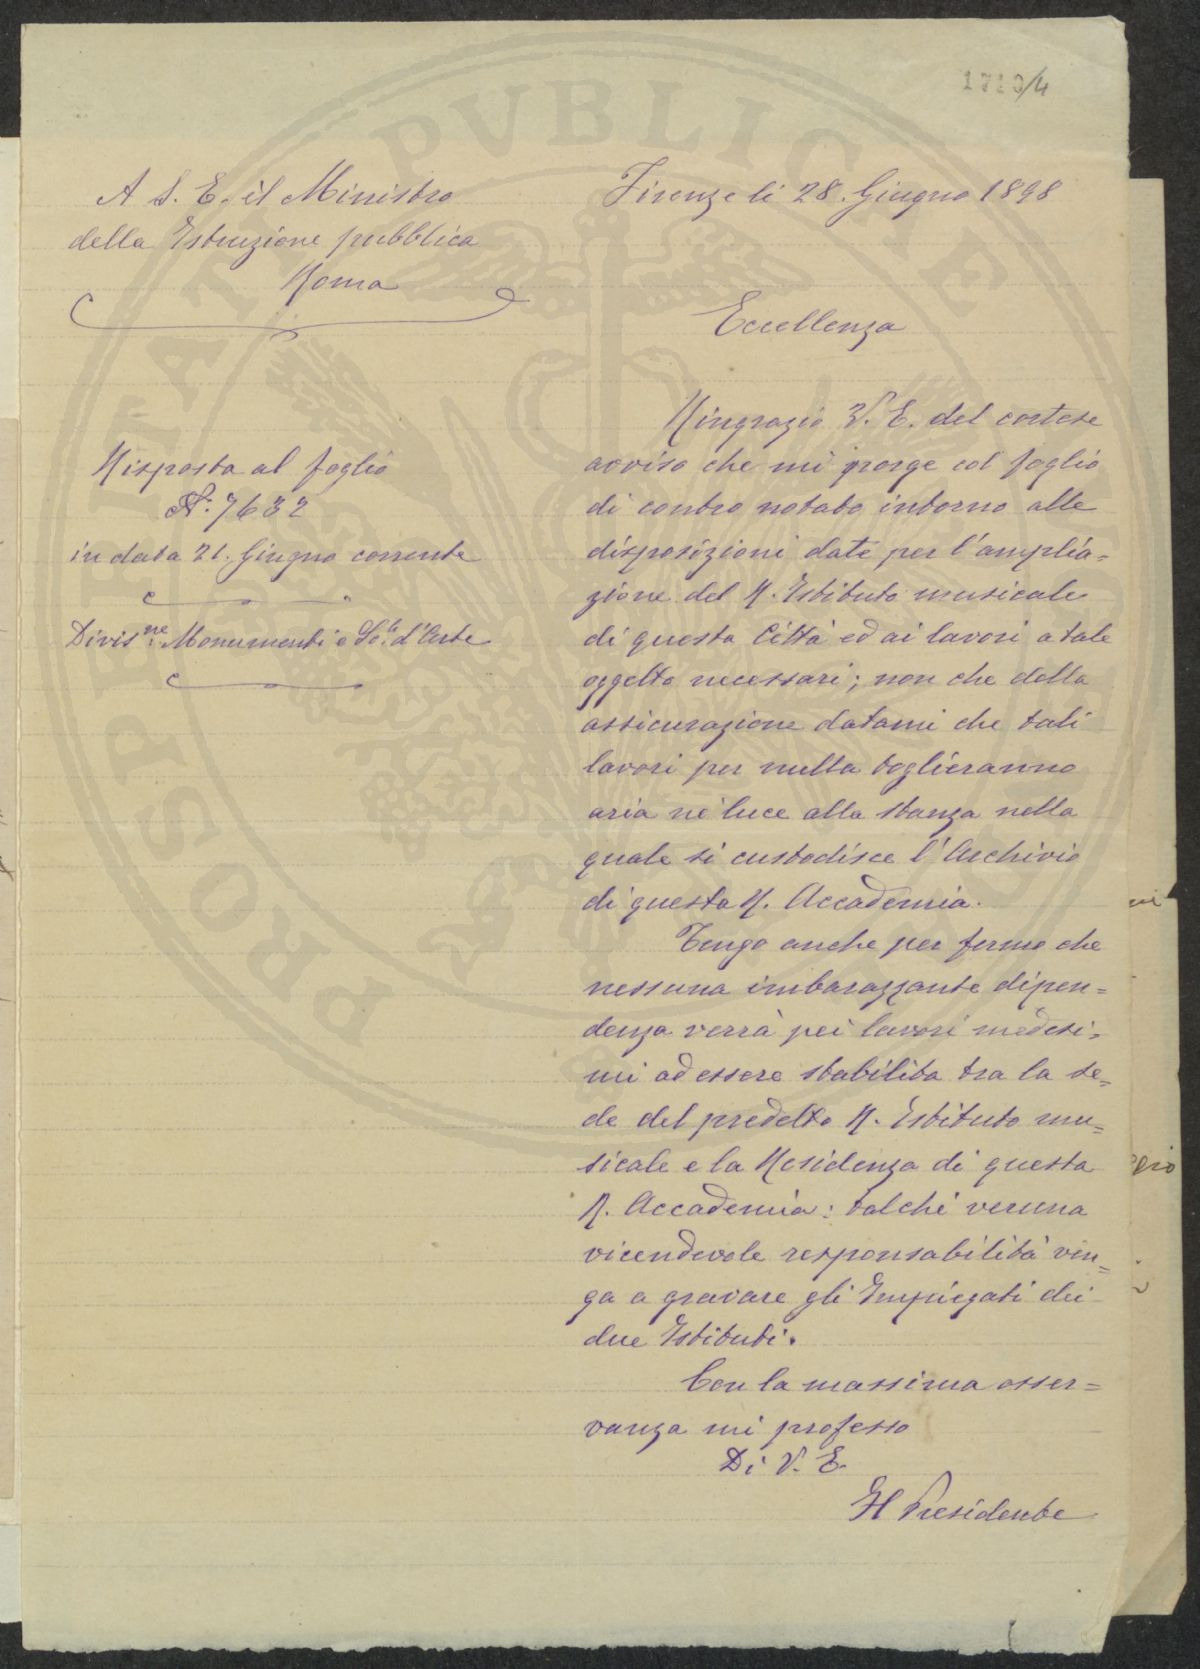 1710/4
A S. E. il Ministro
della Istruzione pubblica
Roma
Firenze li 28. Giugno 1898
Eccellenza
Risposta al foglio
N.: 7632
in data 21. Giugno corrente
Divis.ne Monumenti e Sc.e d'Arte
Ringrazio V. E. del cortese
avviso che mi porge col foglio
di contro notato intorno alle
disposizioni date per l'amplia=
zione del R. Istituto musicale
di questa Città ed ai lavori a tale
oggetto necessari; non che della
assicurazione datami che tali
lavori per nulla toglieranno
aria nè luce alla stanza nella
quale si custodisce l'Archivio
di questa R. Accademia.
Tengo anche per fermo che
nessuna imbarazzante dipen=
denza verrà pei lavori medesi=
mi ad essere stabilita tra la se=
de del predetto R. Istituto mu=
sicale e la Residenza di questa
R. Accademia: talchè veruna
vicendevole responsabilità ven=
ga a gravare gli Impiegati dei
due Istituti.
Con la massima osser=
vanza mi professo
Di V. E.
Il Presidente